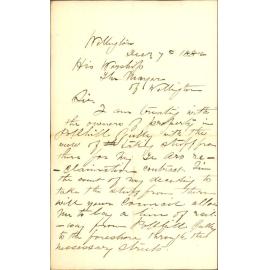 Wellington
Decr 7th 1882
His Worship
The Mayor
of Wellington
Sir
I am treating with
the owners of property in
Polhill Gully with the
view of taking stuff from
there for my Te Aro re-
clamation contract. In
the event of my deciding to
take the stuff from there
will your Council allow
me to lay a line of rail-
way from Polhill Gully
to the foreshore through the
necessary streets